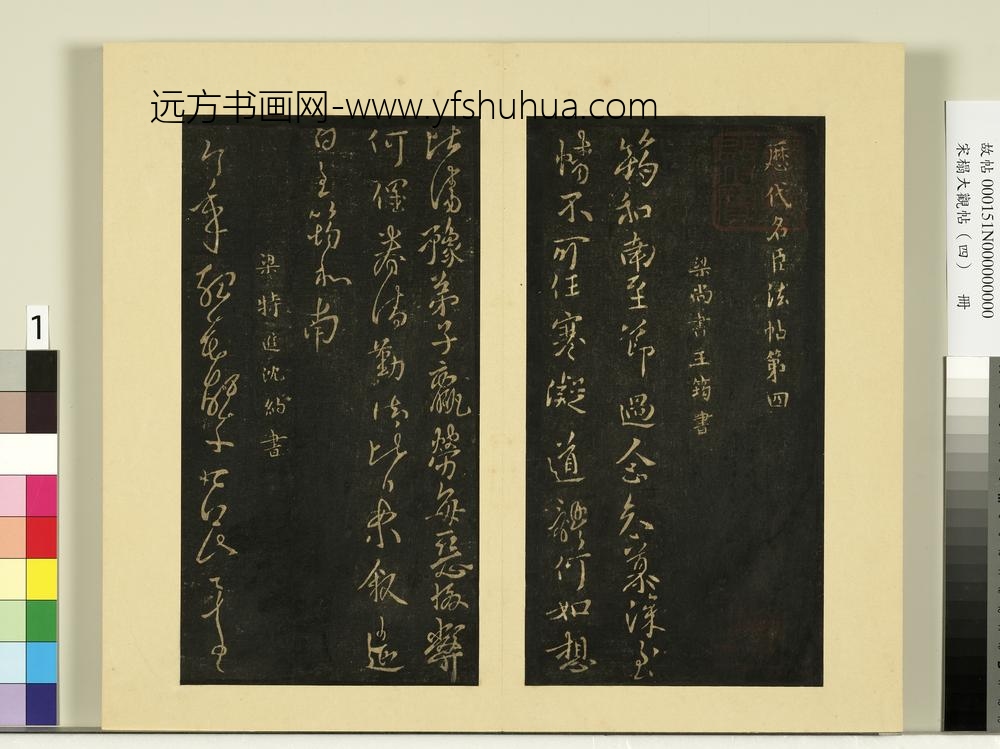 远方书画网-www.yfshuhua.com
歷代名臣法帖第四
梁尚書王筠書
筠和南至節過念慕深至
情不可任寒凝道體何如想
比清豫弟子羸勞每惡
何眷清勤比日來叙遣
白王筠和南
梁特進沈約書
今年
故帖 000151N000000000
宋榻大觀帖（四） 冊
1